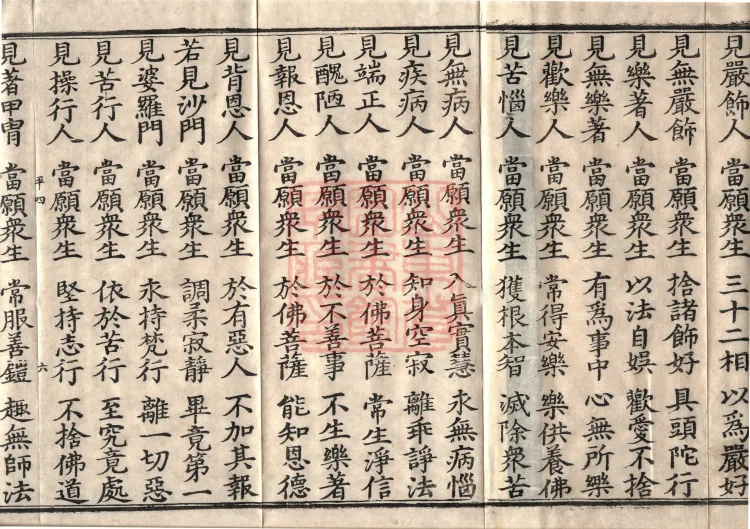 見嚴飾人 當願衆生 三十二相 以爲嚴好
見無嚴飾 當願衆生 捨諸飾好 具頭陀行
見樂著人 當願衆生 以法自娛 歡愛不捨
見無樂著 當願衆生 有爲事中 心無所樂
見歡樂人 當願衆生 常得安樂 樂供養佛
見苦惱人 當願衆生 獲根本智 滅除衆苦
見無病人 當願衆生 入眞實慧 永無病惱
見疾病人 當願衆生 知身空寂 離乖諍法
見端正人 當願衆生 於佛菩薩 常生淨信
見醜陋人 當願衆生 於不善事 不生樂著
見報恩人 當願衆生 於佛菩薩 能知恩德
見背恩人 當願衆生 於有惡人 不加其報
若見沙門 當願衆生 調柔寂靜 畢竟第一
見婆羅門 當願衆生 永持梵行 離一切惡
見苦行人 當願衆生 依於苦行 至究竟處
見操行人 當願衆生 堅持志行 不捨佛道
平四 六
見著甲冑 當願衆生 常服善鎧 趣無師法